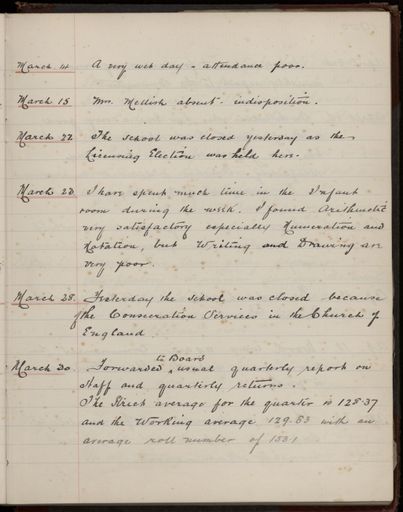 March 14 A very wet day - attendance poor.
March 15 Mrs. Mellish absent - indisposition.
March 22 The school was closed yesterday as the
Licensing Election was held here.
March 23 I have spent much time in the Infant
room during the week. I found Arithmetic
very satisfactory especially Numeration and
Notation, but Writing and Drawing are
very poor.
March 28. Yesterday the school was closed because
of the Consecration Services in the Church of
England
March 30. Forwarded to Board usual quarterly report on
Staff and quarterly returns.
The Strict average for the quarter is 128.37
and the Working average 129.83 with an
average roll number of 153.1